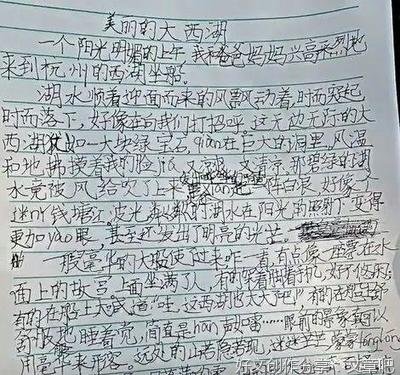 美丽的大西湖
一个阳光明媚的上午,我和爸爸妈妈兴高采烈地
来到杭州的西湖坐船。
湖水顺着迎面而来的风飘动着,时而突起
时而落下,好像在向我们打招呼。这无边无际的大
西湖犹如一大块绿宝石qian在巨大的湖里,风温
和地拂摸着我的脸jia,又凉又清凉,那碧绿的湖
水竟被风给吹了上来,一件白衣,好像
迷ni钱塘江,波光粼粼的湖水在阳光的照射下变得
更加yao眼,甚至还发出了明亮的光芒。
一艘豪华的大船使过来,咋一看,有点像一座露在水
面上的故宫,上面坐满了人,有的举着手机,好不快乐;
有的在船上大武道:“哇,这西湖也太大了吧!”有的在船
睡着觉,简直是han如雷……眼前的景象可以
用豪华来形容。远处的山若隐若现,迷迷
好好创作分享·文章吧